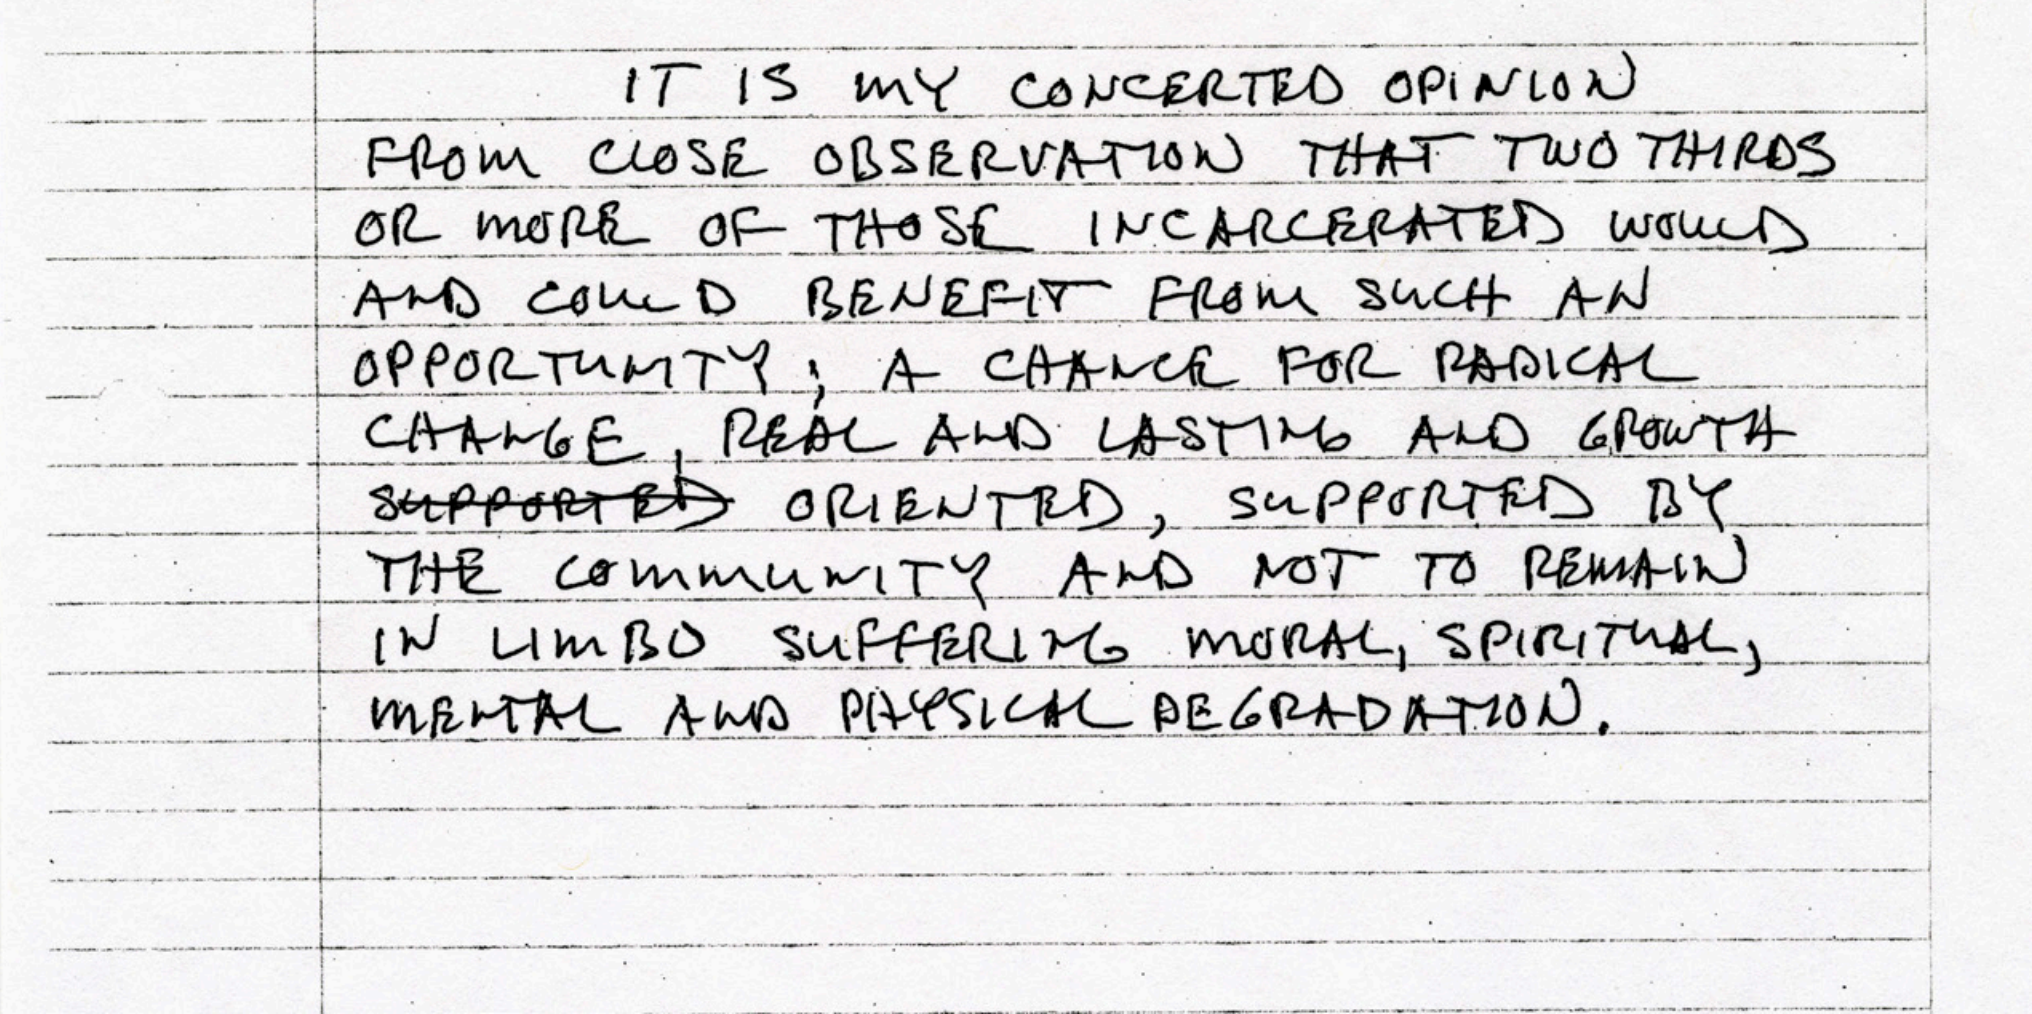 IT IS MY CONCERTED OPINION
FROM CLOSE OBSERVATION THAT TWO THIRDS
OR MORE OF THOSE INCARCERATED WOULD
AND COULD BENEFIT FROM SUCH AN
OPPORTUNITY; A CHANCE FOR RADICAL
CHANGE, REAL AND LASTING AND GROWTH
SUPPORTED ORIENTED, SUPPORTED BY
THE COMMUNITY AND NOT TO REMAIN
IN LIMBO SUFFERING MORAL, SPIRITUAL,
MENTAL AND PHYSICAL DEGRADATION.